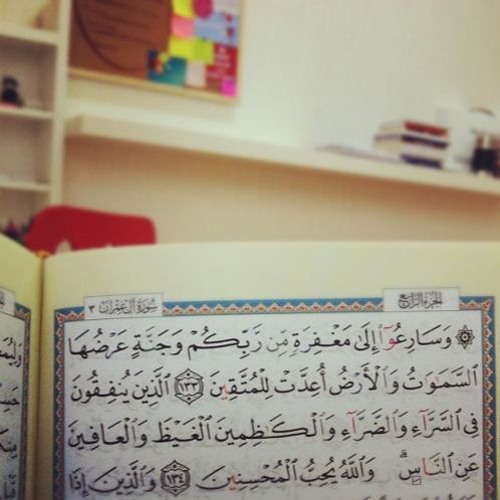 سُورَةُ آلِ عِمْرَانَ ٣
الجُزْءُ الرَّابِعُ
۞ وَسَارِعُوٓا۟ إِلَىٰ مَغْفِرَةٍ مِّن رَّبِّكُمْ وَجَنَّةٍ عَرْضُهَا
ٱلسَّمَٰوَٰتُ وَٱلْأَرْضُ أُعِدَّتْ لِلْمُتَّقِينَ ١٣٣ ٱلَّذِينَ يُنفِقُونَ
فِى ٱلسَّرَّآءِ وَٱلضَّرَّآءِ وَٱلْكَٰظِمِينَ ٱلْغَيْظَ وَٱلْعَافِينَ
عَنِ ٱلنَّاسِ ۗ وَٱللَّهُ يُحِبُّ ٱلْمُحْسِنِينَ ١٣٤ وَٱلَّذِينَ إِذَا